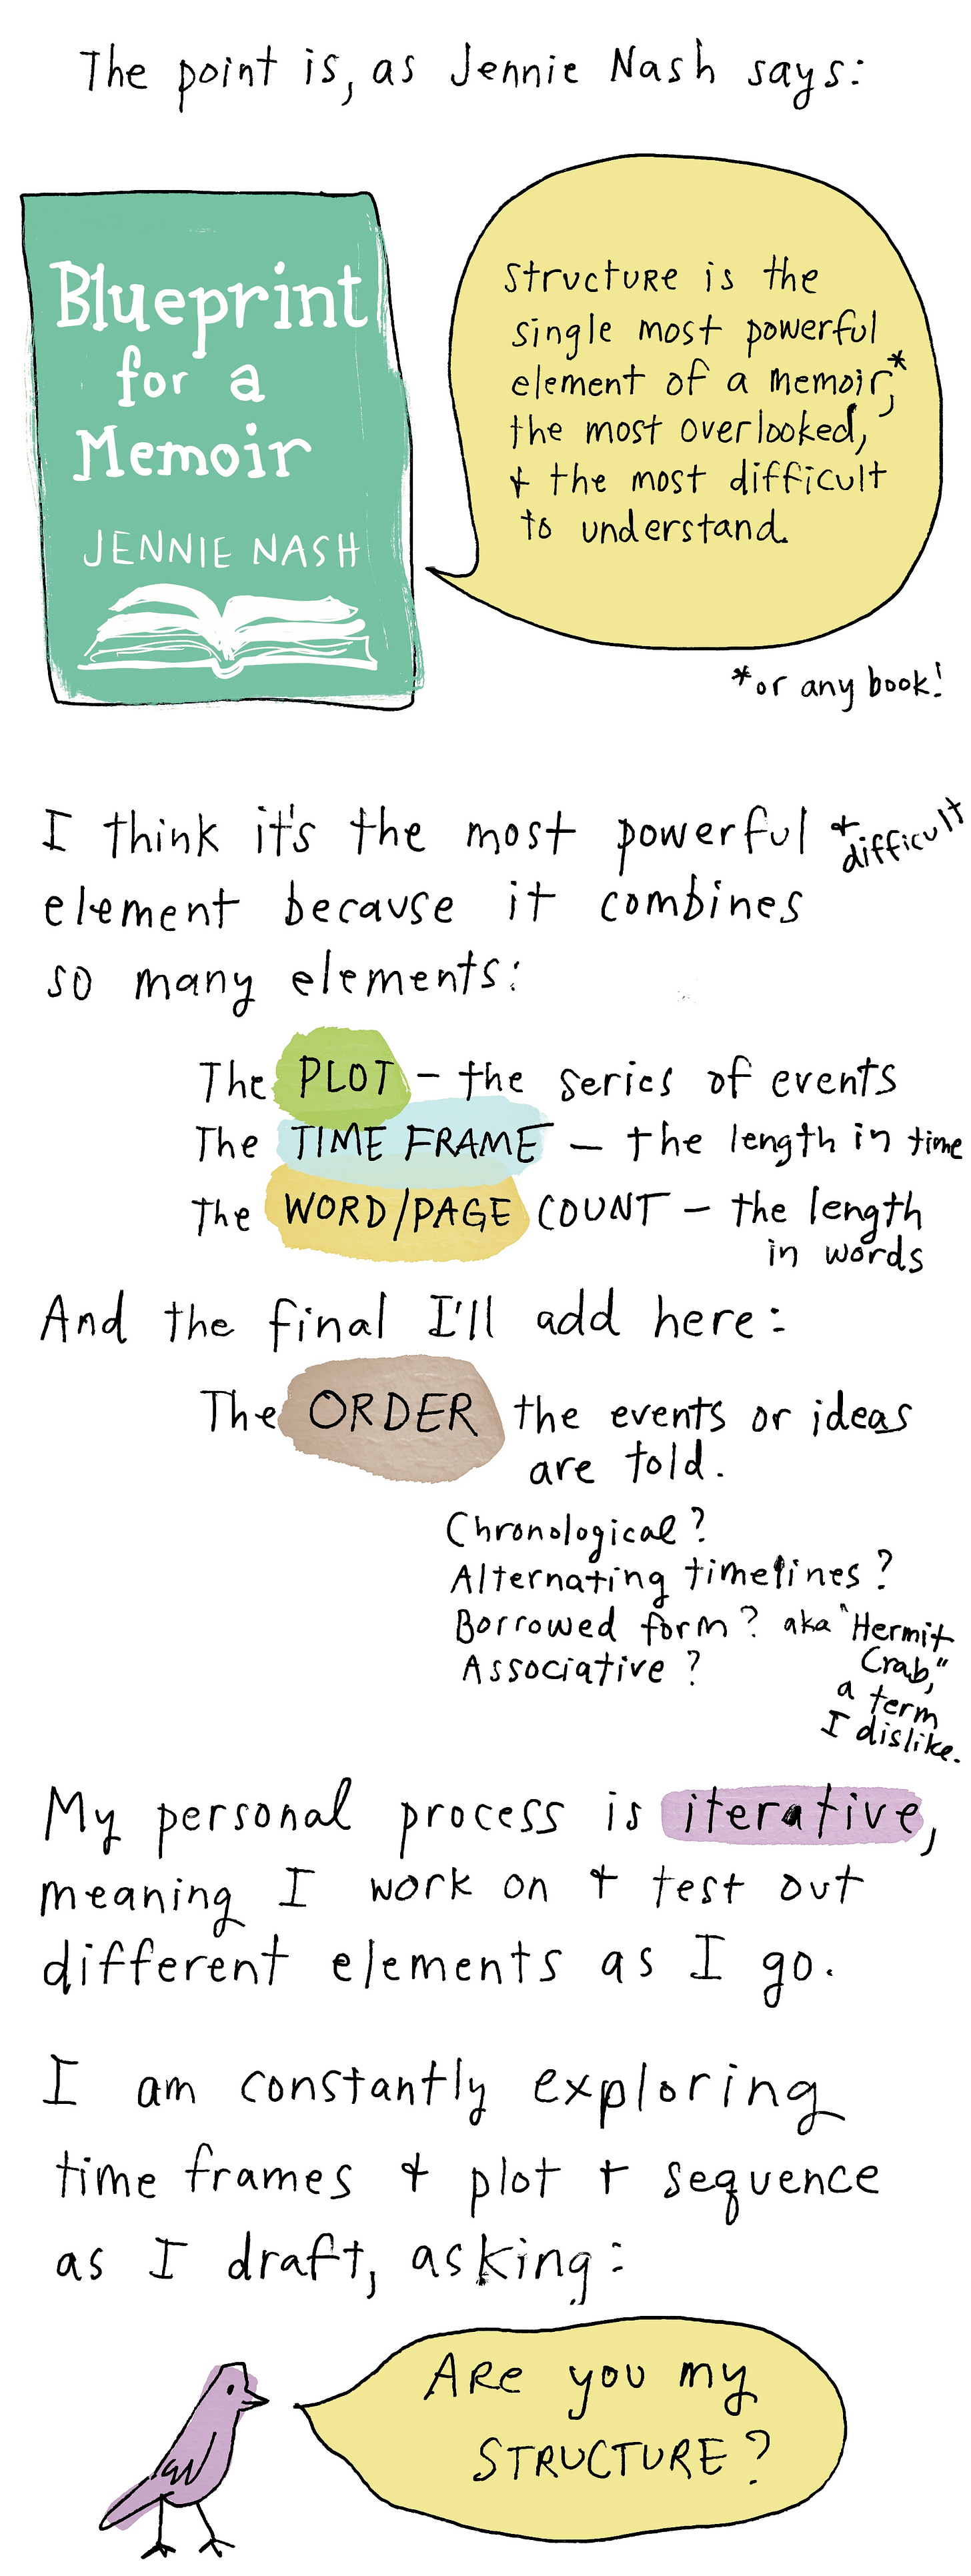 The point is, as Jennie Nash says:
Blueprint
for a
Memoir
JENNIE NASH
Structure is the
single most powerful
element of a memoir,*
the most overlooked,
+ the most difficult
to understand.
*or any book!
I think it's the most powerful + difficult
element because it combines
so many elements:
The PLOT – the series of events
The TIME FRAME – the length in time
The WORD/PAGE COUNT – the length
in words
And the final I'll add here:
The ORDER the events or ideas
are told.
Chronological?
Alternating timelines?
Borrowed form? aka "Hermit
Crab,"
Associative?
a term
I dislike.
My personal process is iterative,
meaning I work on + test out
different elements as I go.
I am constantly exploring
time frames + plot + sequence
as I draft, asking:
Are you my
STRUCTURE?